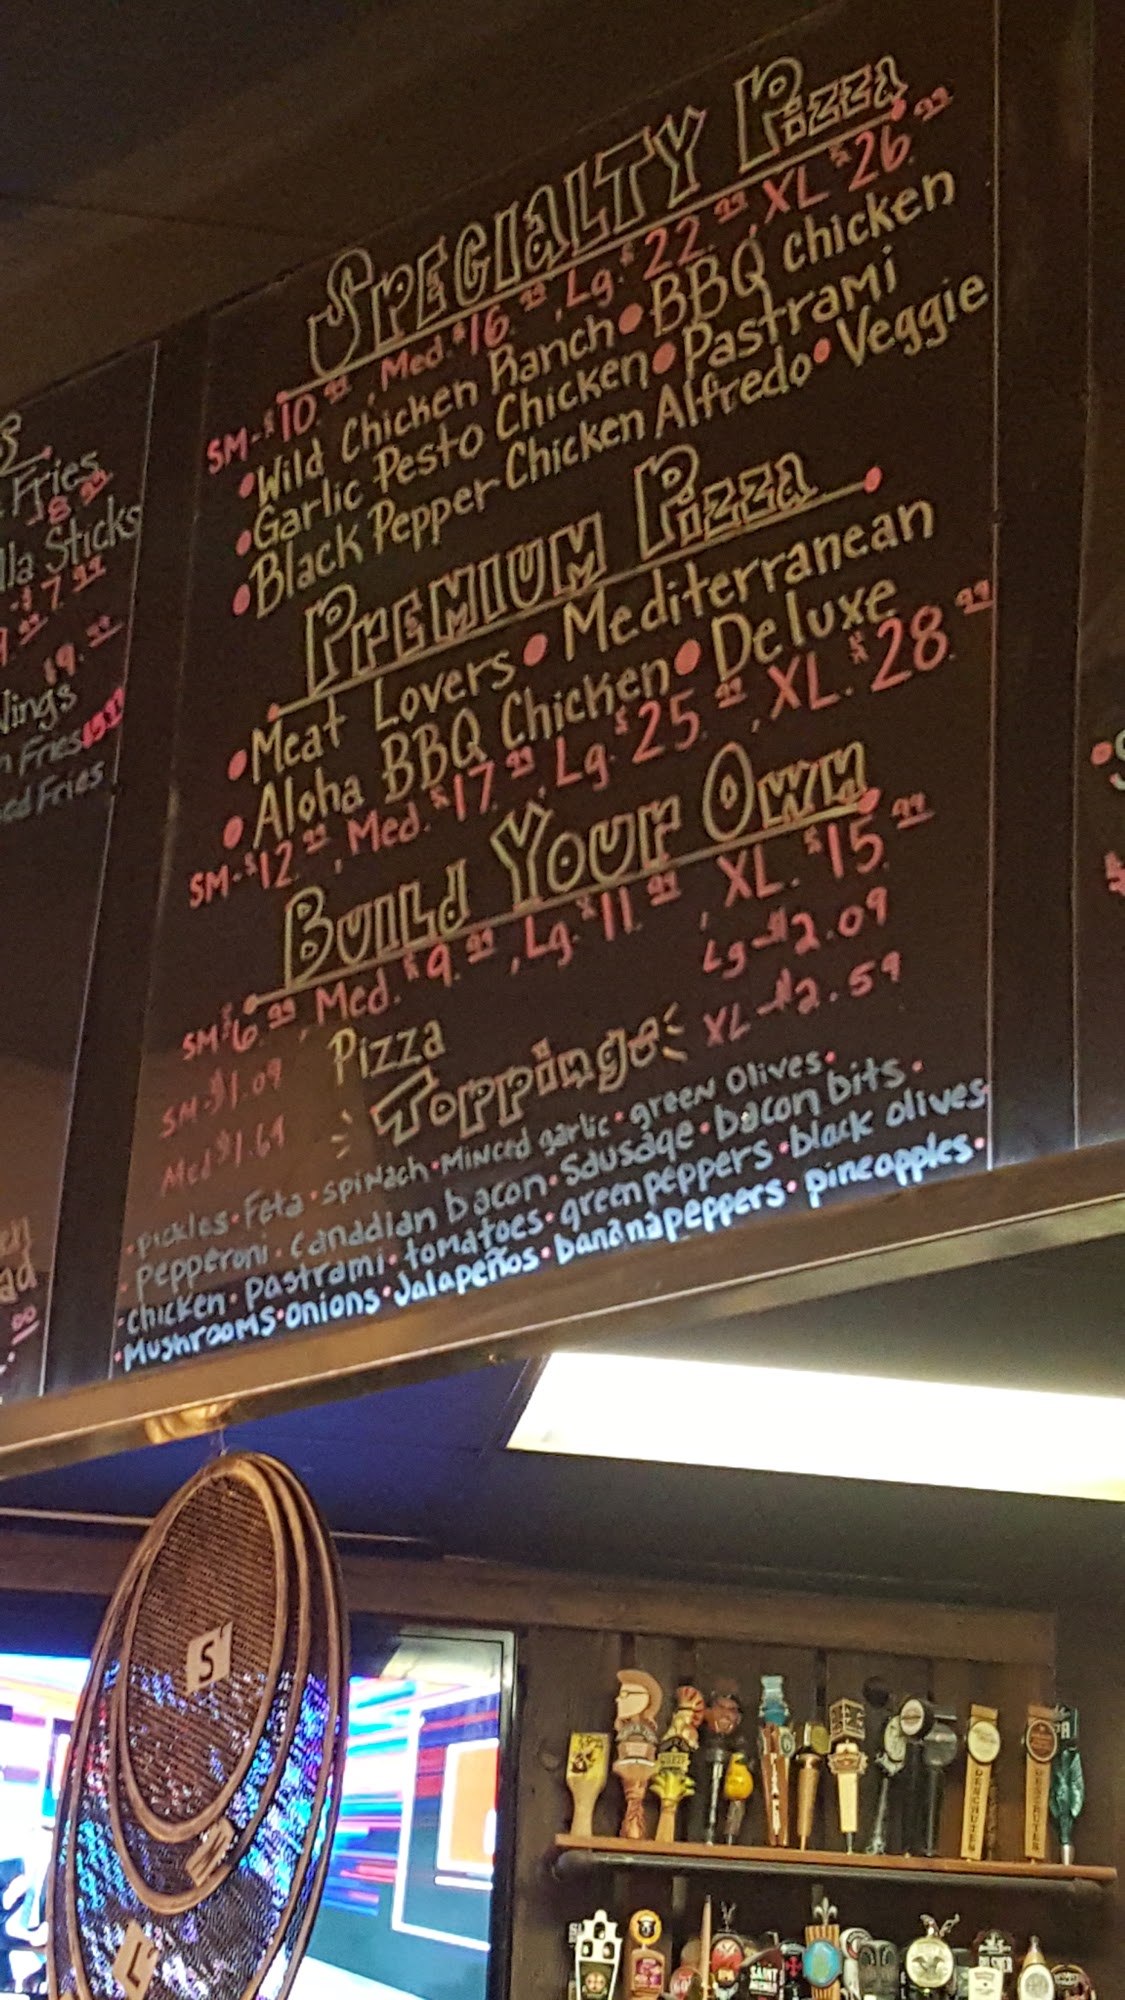 Specialty Pizza
SM-$10.99, Med.$16.99, Lg.$22.99, XL $26.99
•Wild Chicken Ranch•BBQ chicken
•Garlic Pesto Chicken•Pastrami
•Black Pepper Chicken Alfredo•Veggie
Premium Pizza
•Meat Lovers•Mediterranean
•Aloha BBQ Chicken•Deluxe
SM-$12.99, Med.$17.99, Lg.$25.99, XL.$28.99
Build Your Own
SM $6.99, Med.$9.99, Lg.$11.99, XL.$15.99
Pizza
Toppings
SM-$1.09
Med $1.69
Lg-$2.09
XL-$2.59
•pickles•Feta•spinach•Minced garlic•green olives•
•Pepperoni•canadian bacon•Sausage•bacon bits•
•chicken•pastrami•tomatoes•green peppers•black olives
•Mushrooms•onions•Jalapeños•bananapeppers•pineapples•
Fries
8.99
Sticks
$7.99
$9.99
Fries
Fries
S
M
L
DESCHUTES
DESCHUTES
SAINT